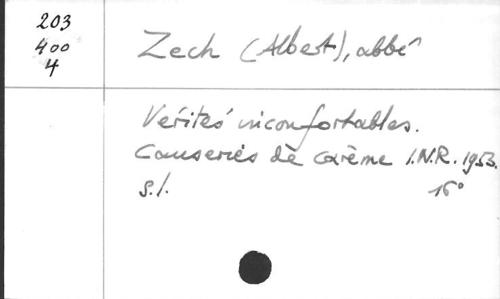 203
400
4
Zech (Albert), abbé
Vérités inconfortables.
Causeries de carême I.N.R. 1953.
S.l. 16°